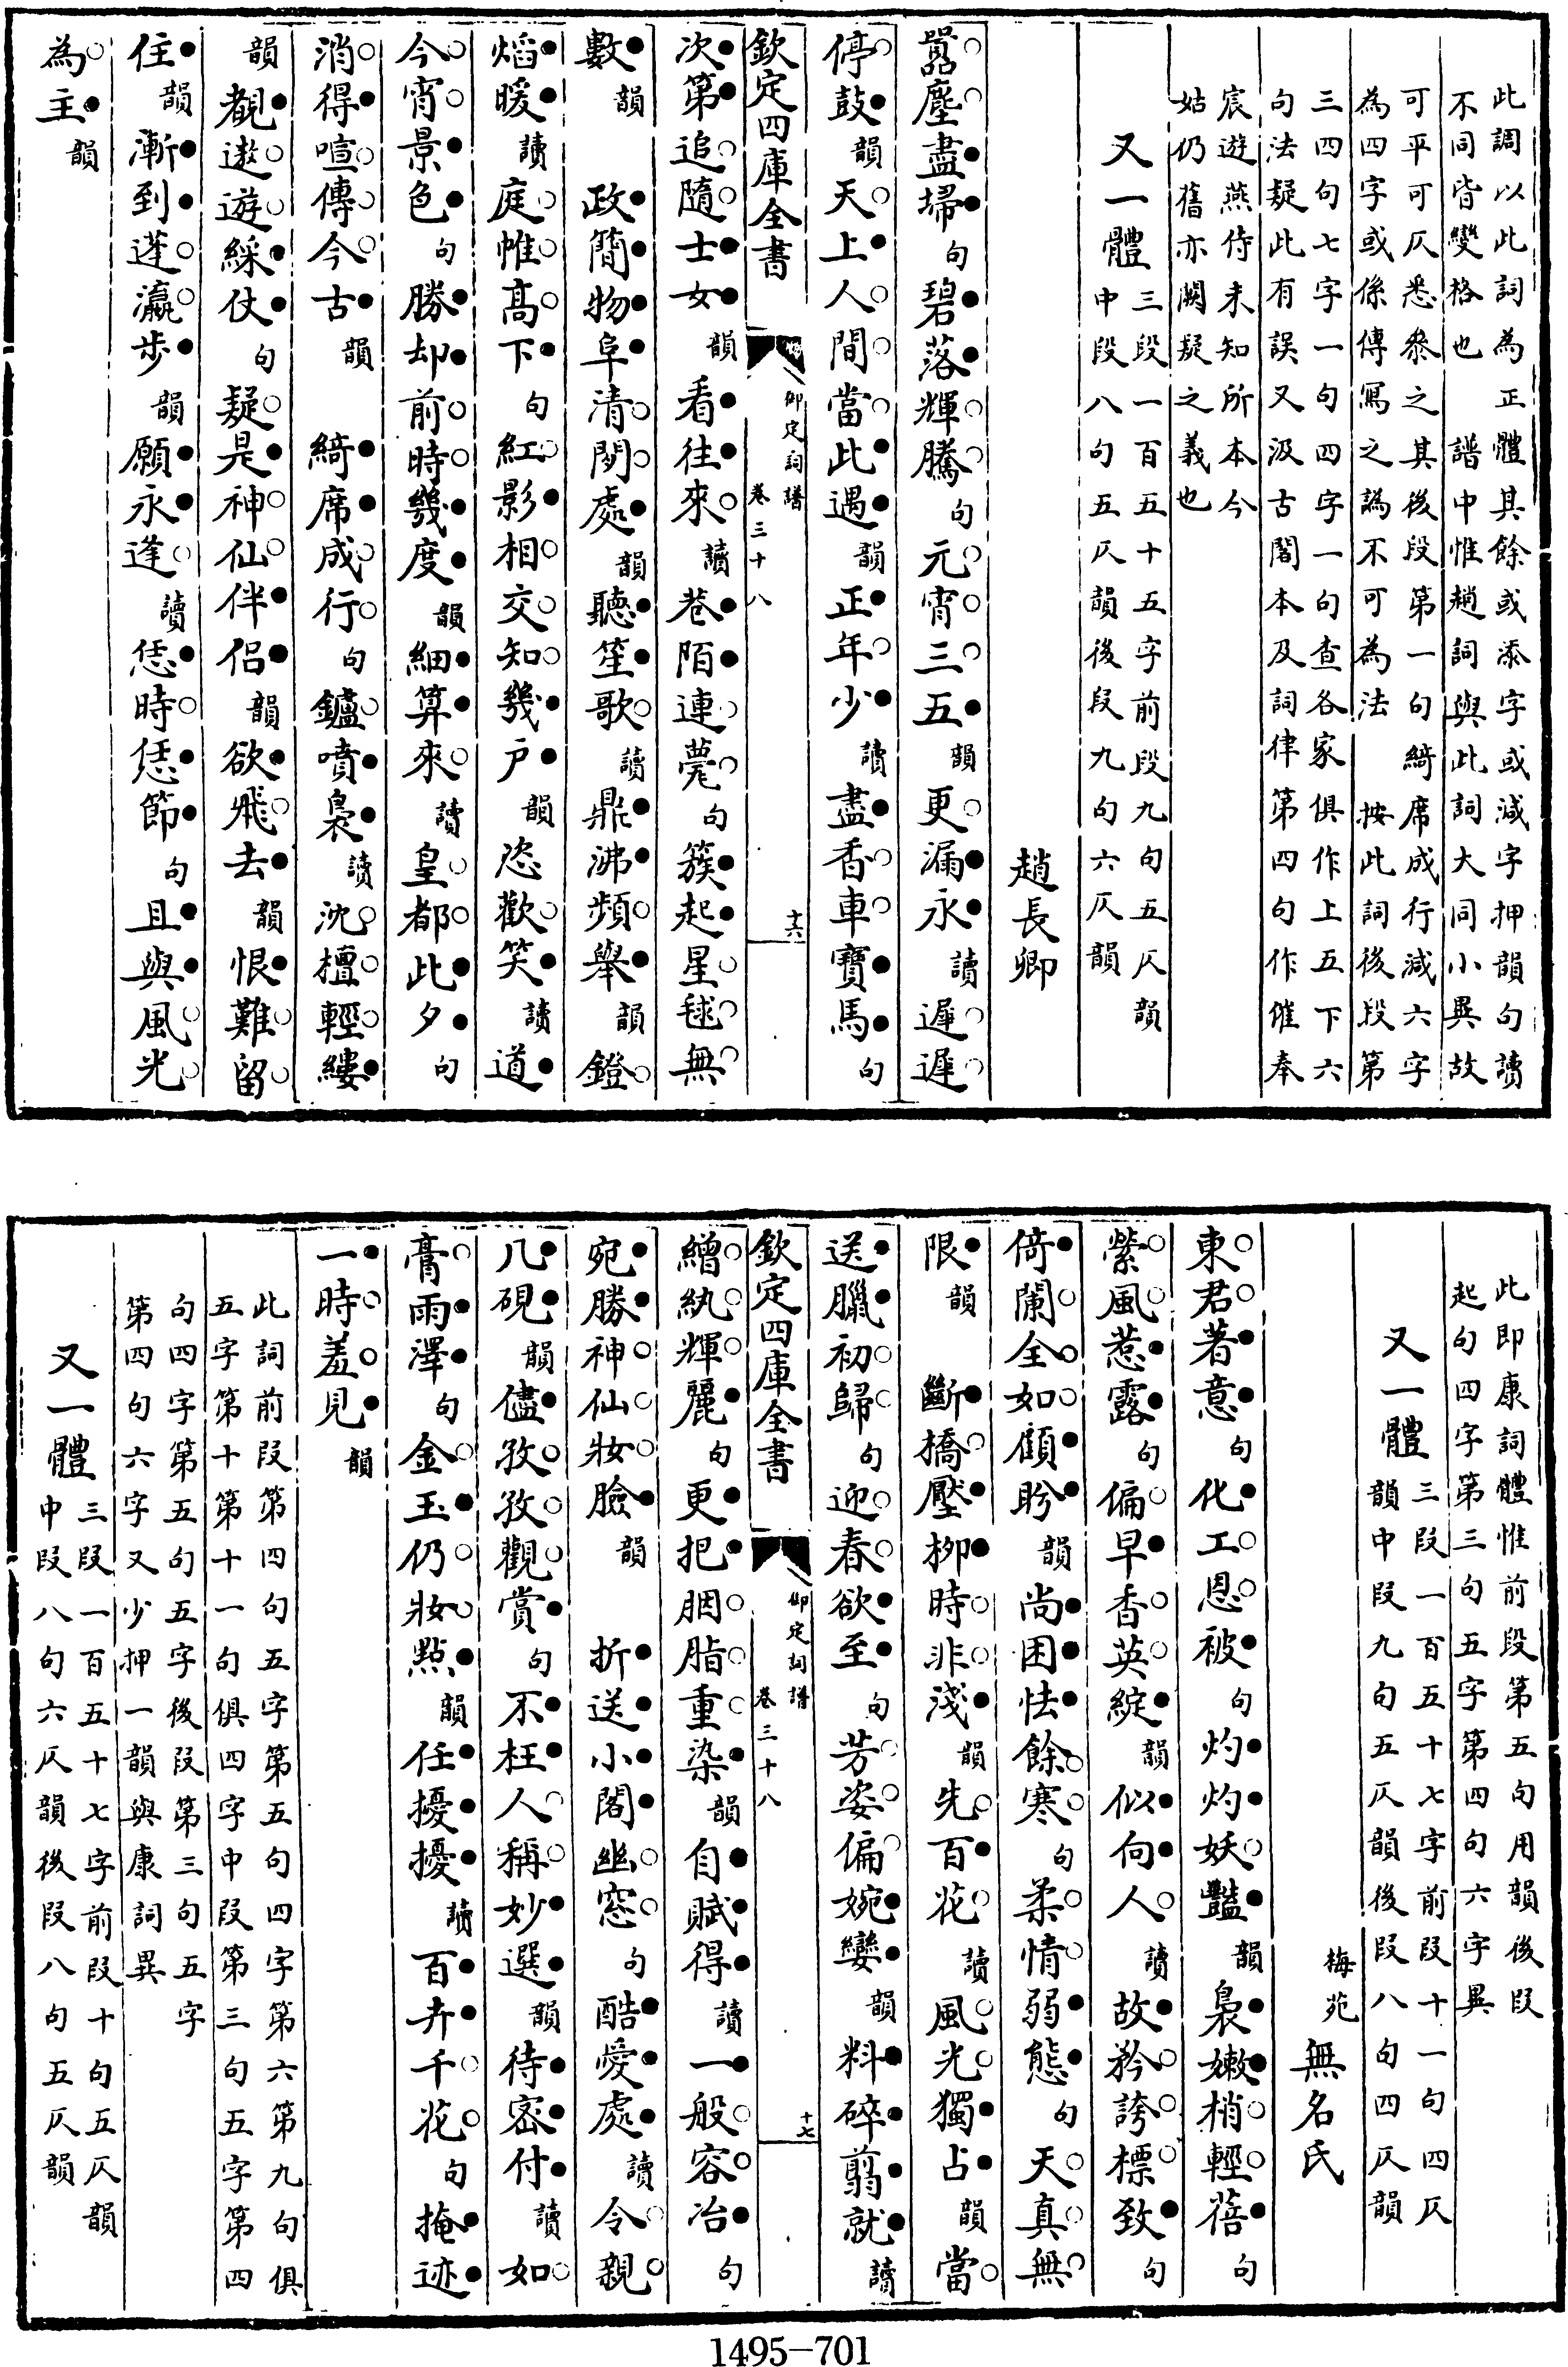 此調以此詞為正體其餘或添字或減字押韻句讀
不同皆變格也　譜中惟趙詞與此詞大同小異故
可平可仄悉叅之其後段第一句綺席成行減六字
為四字或係傳寫之譌不可為法　按此詞後段第
三四句七字一句四字一句查各家俱作上五下六
句法疑此有誤又汲古閣本及詞律第四句作催奉
宸遊燕侍未知所本今
姑仍舊亦闕疑之義也
又一體
三段一百五十五字前段九句五仄韻
中段八句五仄韻後段九句六仄韻
趙長卿
嚣塵盡埽句碧落輝騰句元宵三五韻更漏永讀遲遲
停鼓韻天上人間當此遇韻正年少讀盡香車寶馬句
欽定四庫全書
御定詞譜
卷三十八
十六
次第追隨士女韻看往來讀巷陌連甍句簇起星毬無
數韻　政簡物阜清閒處韻聽笙歌讀鼎沸頻舉韻鐙
燄暖讀庭帷高下句紅影相交知幾戶韻恣歡笑讀道
今宵景色句勝却前時幾度韻細算來讀皇都此夕句
消得喧傳今古韻　綺席成行句鑪噴裊讀沈檀輕縷
韻覩遨遊綵仗句疑是神仙伴侶韻欲飛去韻恨難留
住韻漸到蓬瀛步韻願永逢讀恁時恁節句且與風光
為主韻
此即康詞體惟前段第五句用韻後段
起句四字第三句五字第四句六字異
又一體
三段一百五十七字前段十一句四仄
韻中段九句五仄韻後段八句四仄韻
梅苑無名氏
東君著意句化工恩被句灼灼妖豔韻裊嫩梢輕蓓句
縈風惹露句偏早香英綻韻似向人讀故矜誇標致句
倚闌全如顧盻韻尚困怯餘寒句柔情弱態句天真無
限韻　斷橋壓柳時非淺韻先百花讀風光獨占韻當
送臘初歸句迎春欲至句芳姿偏婉孌韻料碎翦就讀
欽定四庫全書
御定詞譜
卷三十八
十七
繒紈輝麗句更把胭脂重染韻自賦得讀一般容冶句
宛勝神仙妝臉韻　折送小閣幽窓句酷愛處讀令親
几硯韻儘孜孜觀賞句不枉人稱妙選韻待密付讀如
膏雨澤句金玉仍妝點韻任擾擾讀百卉千花句掩迹
一時羞見韻
此詞前段第四句五字第五句四字第六第九句俱
五字第十第十一句俱四字中段第三句五字第四
句四字第五句五字後段第三句五字
第四句六字又少押一韻與康詞異
又一體
三段一百五十七字前段十句五仄韻
中段八句六仄韻後段八句五仄韻
1495-701